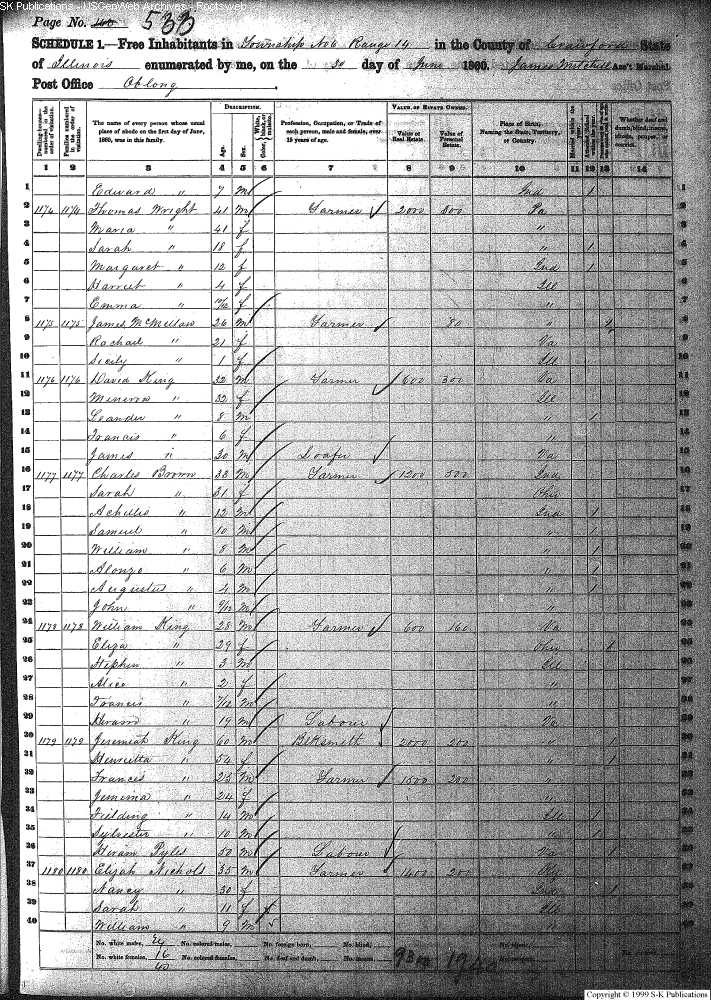 SK Publications - USGenWeb Archives - Rootsweb
Page No. 533
SCHEDULE 1.—Free Inhabitants in Township No 6 Range 14 in the County of Crawford State
of Illinois enumerated by me, on the 30 day of June 1860. James Mitchell Ass't Marshal.
Post Office Oblong
DESCRIPTION. VALUE OF ESTATE OWNED.
Dwelling-houses— numbered in the order of visitation. Families numbered in the order of visitation. The name of every person whose usual place of abode on the first day of June, 1860, was in this family. Age. Sex. Color, White, black, or mulatto. Profession, Occupation, or Trade of each person, male and female, over 15 years of age. Value of Real Estate. Value of Personal Estate. Place of Birth, Naming the State, Territory, or Country. Married within the year. Whether deaf and dumb, blind, insane, idiotic, pauper, or convict.
1 2 3 4 5 6 7 8 9 10 11 12 13 14
1 Edward " 7 m Ind 1 1
2 1174 1174 Thomas Wright 41 m Farmer 2000 800 Pa 2
3 Maria " 41 f " 3
4 Sarah " 18 f " 1 4
5 Margaret " 12 f Ind 1 5
6 Harriet " 4 f Ill 6
7 Emma " 10/12 f " 7
8 1175 1175 James McMellan 26 m Farmer 80 " 8
9 Rachail " 21 f Va 9
10 Sicily " 1 f Ill 10
11 1176 1176 David King 32 m Farmer 600 300 Va 11
12 Minerva " 32 f Ill 12
13 Leander " 8 m " 1 13
14 Francis " 6 f " 14
15 James " 30 m Loafer Va 15
16 1177 1177 Charles Brown 33 m Farmer 1200 500 Ind 16
17 Sarah " 31 f Ohio 17
18 Achilles " 12 m Ind 1 18
19 Samuel " 10 m " 1 19
20 William " 8 m " 1 20
21 Alonzo " 6 m " 1 21
22 Augustus " 4 m " 1 22
23 John " 9/12 m " 23
24 1178 1178 William King 28 m Farmer 600 160 Va 24
25 Eliza " 29 f Ohio 1 25
26 Stephen " 3 m Ill 26
27 Alice " 2 f " 27
28 Francis " 7/12 m " 28
29 Hiram " 19 m Labour Va 29
30 1179 1179 Jeremiah King 60 m Blksmith 2000 200 " 1 30
31 Henrietta " 54 f " 1 31
32 Francis " 23 m Farmer 1500 200 " 32
33 Jemima " 24 f " 33
34 Fielding " 14 m Ill 1 34
35 Sylvester " 10 m " 1 35
36 Hiram Pyles 50 m Labour 36
37 1180 1180 Elijah Nichols 35 m Farmer 1400 200 Ky 37
38 Nancy " 30 f Ind 1 38
39 Sarah " 11 f Ill 39
40 William " 9 m " 40
No. white males, 24 No. colored males, No. foreign born, No. blind, No. idiotic,
No. white females, 16 No. colored females, No. deaf and dumb, No. insane,
40
Copyright © 1999 S-K Publications